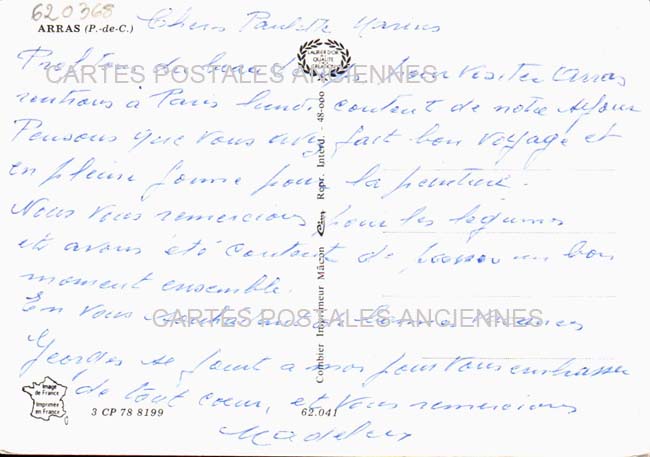 620368
ARRAS (P.-de-C.)
Chers Paulette Marius
LAURIER D'OR
QUALITÉ
Profitons de beau temps pour visiter Arras
CARTES POSTALES ANCIENNES
rentrons à Paris lundi content de notre séjour
Pensons que vous avez fait bon voyage et
en pleine forme pour la peinture.
Nous vous remercions pour les légumes
et avons été content de passer un bon
moment ensemble.
En vous souhaitant bonnes vacances
CARTES POSTALES ANCIENNES
Georges se joint a moi pour vous embrasser
de tout coeur, et vous remercions
Combier Imprimeur Mâcon Cim Repr. Interd. - 48-000
Image
de France
Imprimée
en France
3 CP 78 8199
62.041